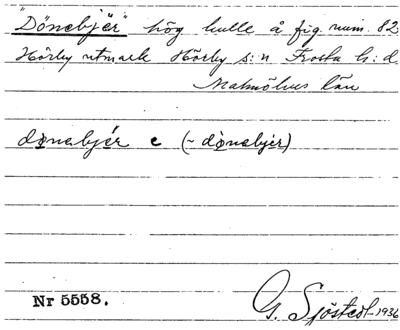 "Dönebjär" hög kulle å fig. num. 82
Hörby utmark Hörby s:n Frosta h:d
Malmöhus län
dønabjér c (~ dònabjér)
Nr 5558.
G. Sjöstedt 1936